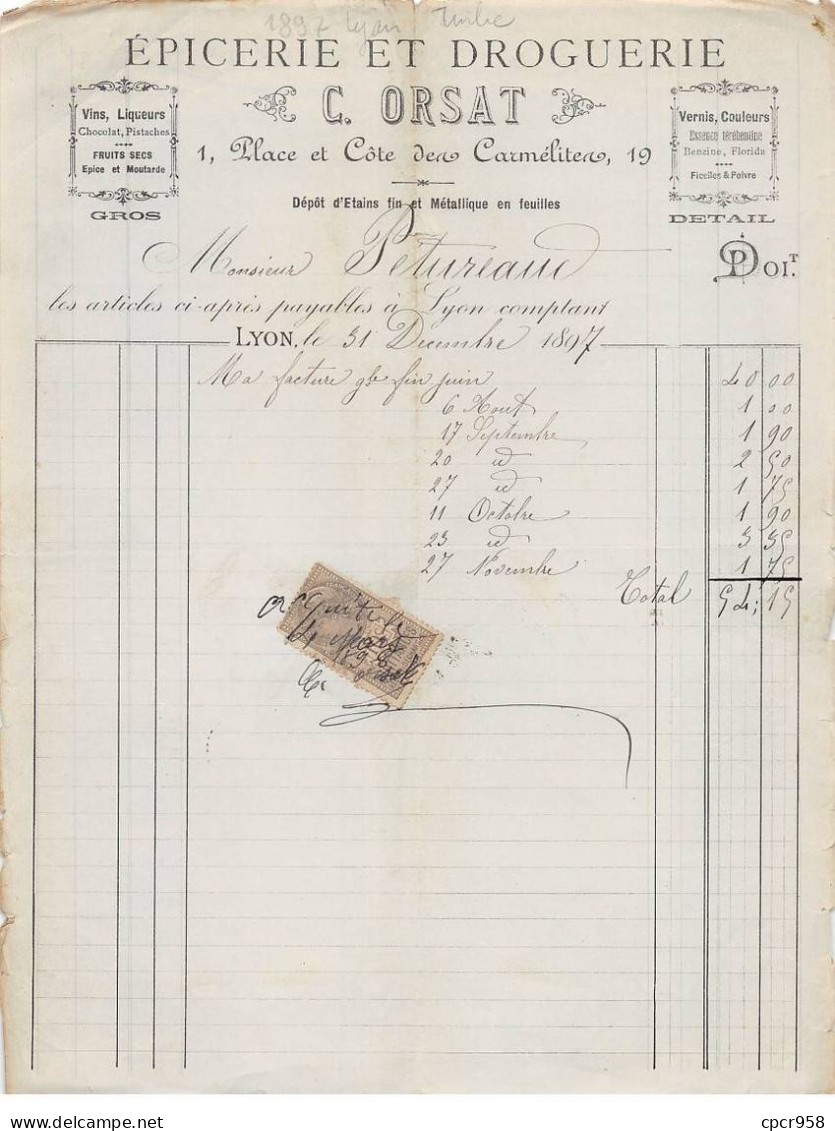 1897 Lyon Timbre
ÉPICERIE ET DROGUERIE
C. ORSAT
1, Place et Côte des Carmélites, 19
Dépôt d'Etains fin et Métallique en feuilles
Vins, Liqueurs
Chocolat, Pistaches
FRUITS SECS
Epice et Moutarde
GROS
Vernis, Couleurs
Essence térébenzine
Benzine, Florida
Ficelles & Poivre
DETAIL
Monsieur Petureaud DOIT.
les articles ci-après payables à Lyon comptant
LYON, le 31 Decembre 1897
Ma facture fin juin 40 00
6 Aout 1 00
17 Septembre 1 90
20 id 2 50
27 id 1 75
11 Octobre 1 90
23 id 3 35
27 Novembre 1 75
Total 54,15
acquitté le
4 Mars
1898
cpcr958